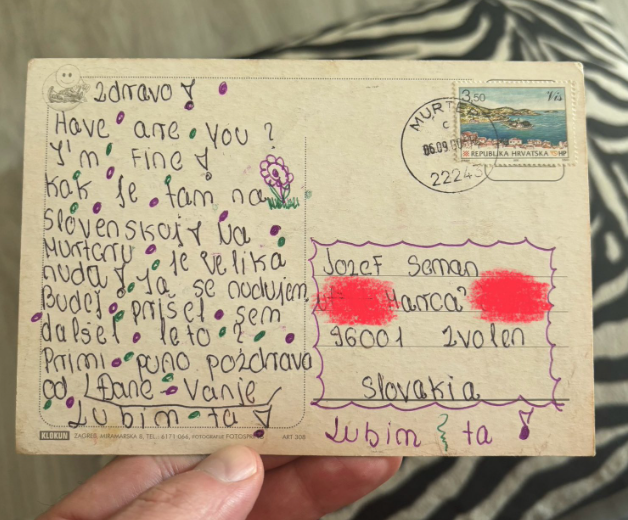 Zdravo!
Have are you?
I'm Fine!
Kak je tam na
Slovenskoj? Na
Murteru je velika
nuda! Ja se nudujem.
Budeš prišel sem
dalšel leto?
Primi puno pozdrava
od Đane Vanje
Lubim ta!
KLOKUN ZAGREB, MIRAMARSKA 8, TEL.: 6171 064,
ART 308
MURTER
C
06.09.
22243
3,50 Vis
REPUBLIKA HRVATSKA HP
Jozef Seman
Harca
96001 Zvolen
Slovakia
Lubim ta!